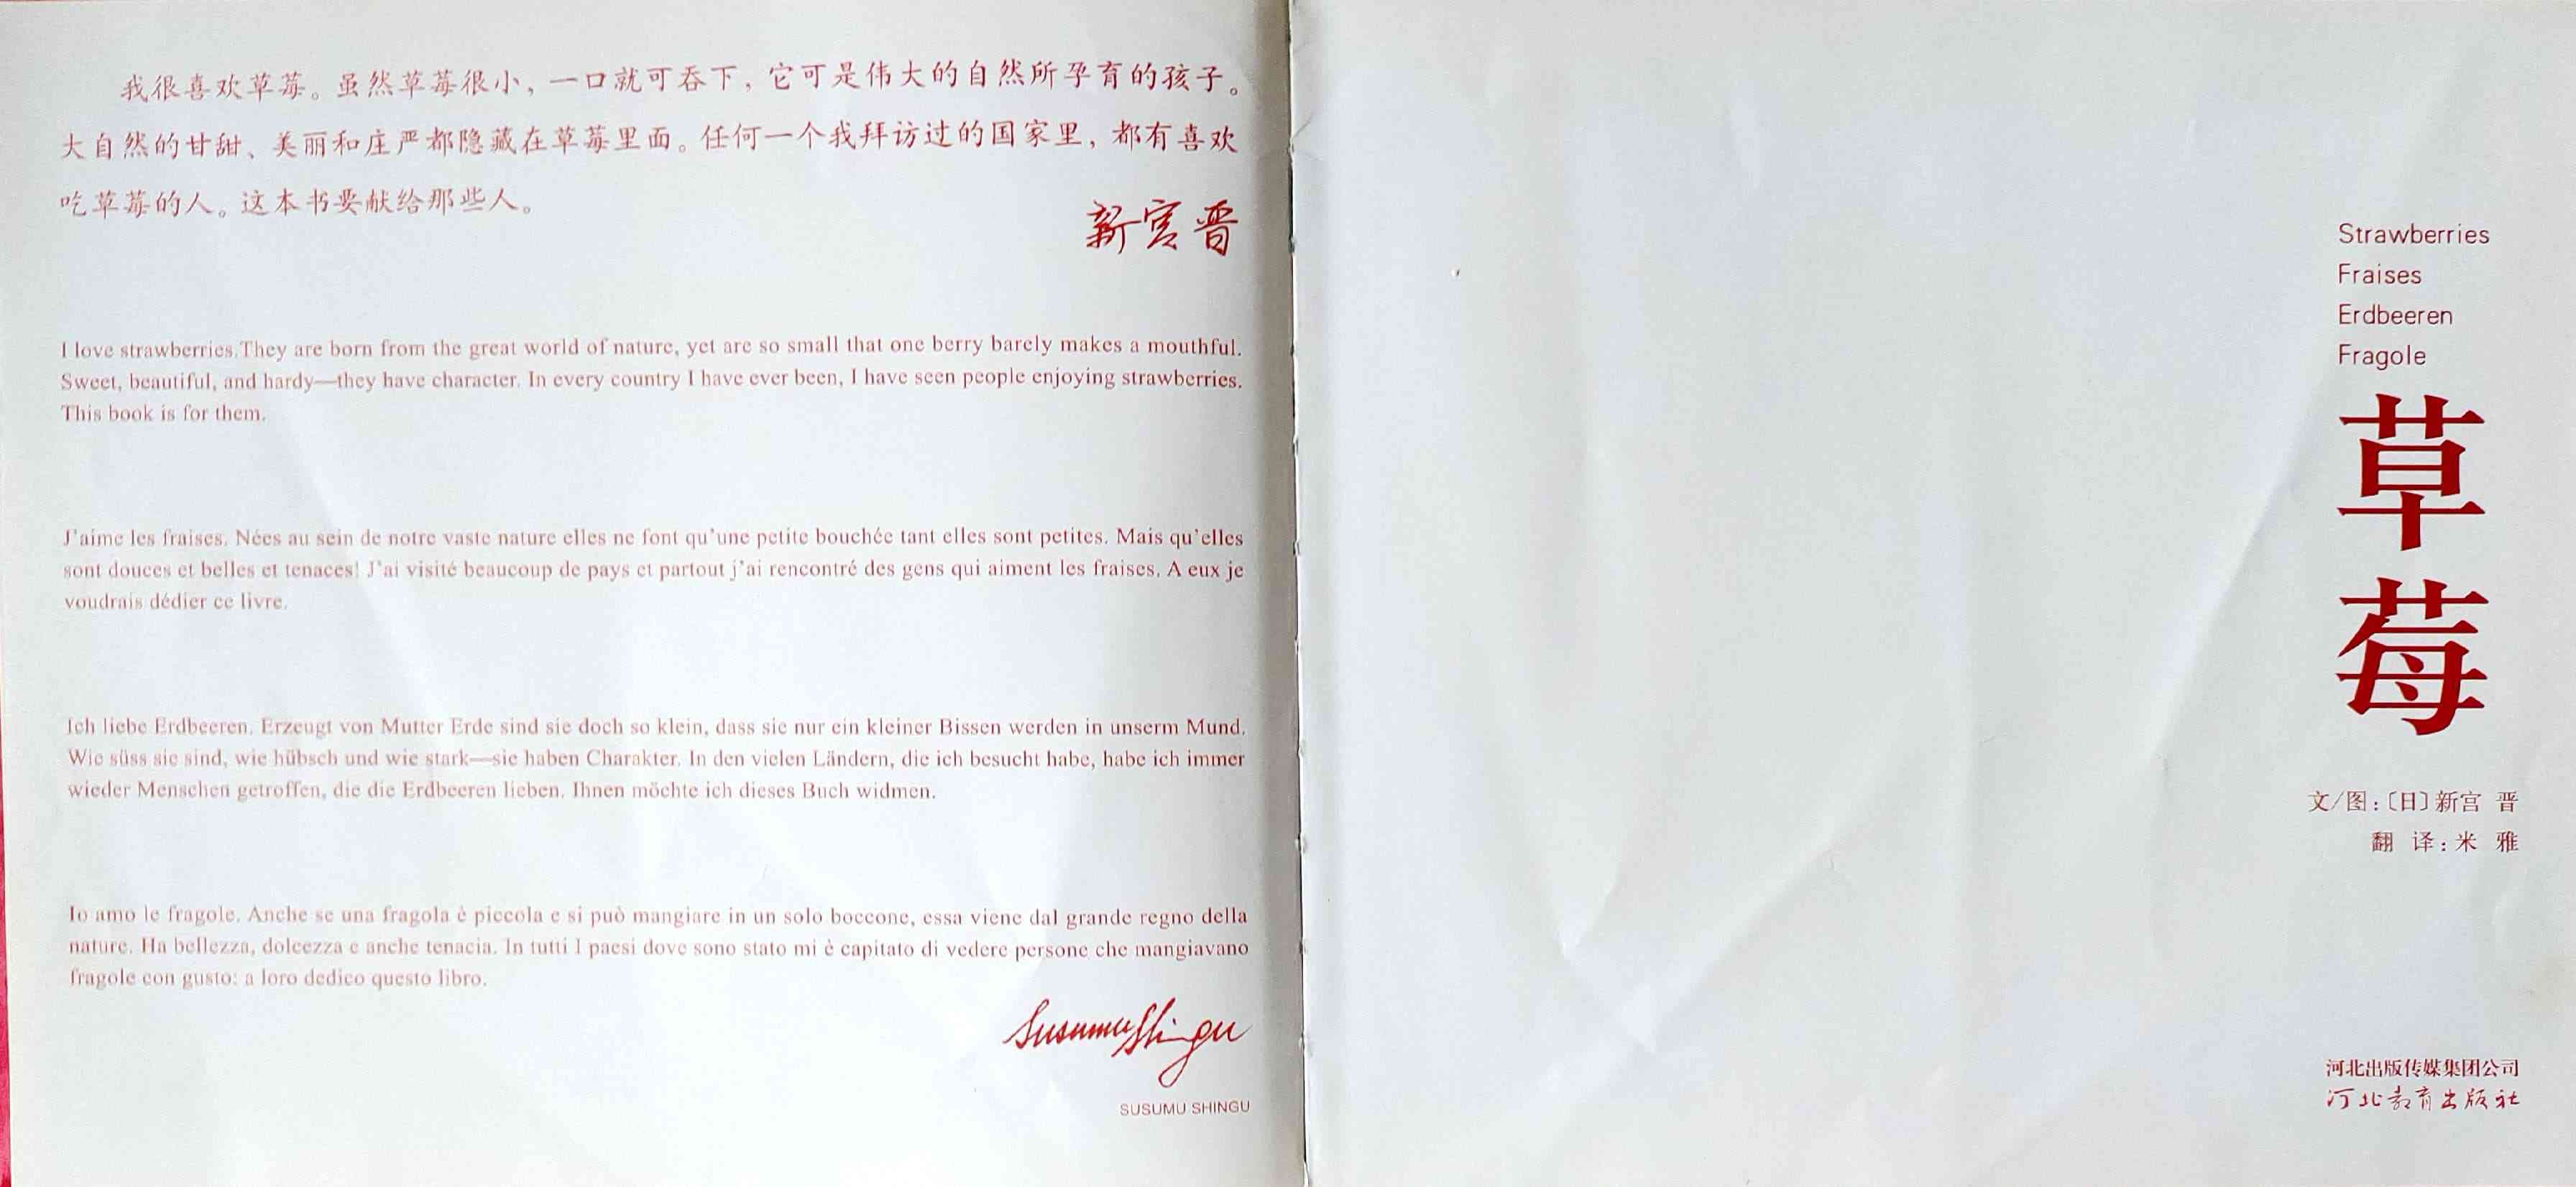 我很喜欢草莓。虽然草莓很小，一口就可吞下，它可是伟大的自然所孕育的孩子。
大自然的甘甜、美丽和庄严都隐藏在草莓里面。任何一个我拜访过的国家里，都有喜欢
吃草莓的人。这本书要献给那些人。
新宫晋
I love strawberries.They are born from the great world of nature, yet are so small that one berry barely makes a mouthful.
Sweet, beautiful, and hardy—they have character. In every country I have ever been, I have seen people enjoying strawberries.
This book is for them.
J'aime les fraises. Nées au sein de notre vaste nature elles ne font qu'une petite bouchée tant elles sont petites. Mais qu'elles
sont douces et belles et tenaces! J'ai visité beaucoup de pays et partout j'ai rencontré des gens qui aiment les fraises. A eux je
voudrais dédier ce livre.
Ich liebe Erdbeeren. Erzeugt von Mutter Erde sind sie doch so klein, dass sie nur ein kleiner Bissen werden in unserm Mund.
Wie süss sie sind, wie hübsch und wie stark—sie haben Charakter. In den vielen Ländern, die ich besucht habe, habe ich immer
wieder Menschen getroffen, die die Erdbeeren lieben. Ihnen möchte ich dieses Buch widmen.
Io amo le fragole. Anche se una fragola è piccola e si può mangiare in un solo boccone, essa viene dal grande regno della
nature. Ha bellezza, dolcezza e anche tenacia. In tutti I paesi dove sono stato mi è capitato di vedere persone che mangiavano
fragole con gusto: a loro dedico questo libro.
Susumu Shingu
SUSUMU SHINGU
Strawberries
Fraises
Erdbeeren
Fragole
草莓
文/图：〔日〕新宫 晋
翻 译：米 雅
河北出版传媒集团公司
河北教育出版社